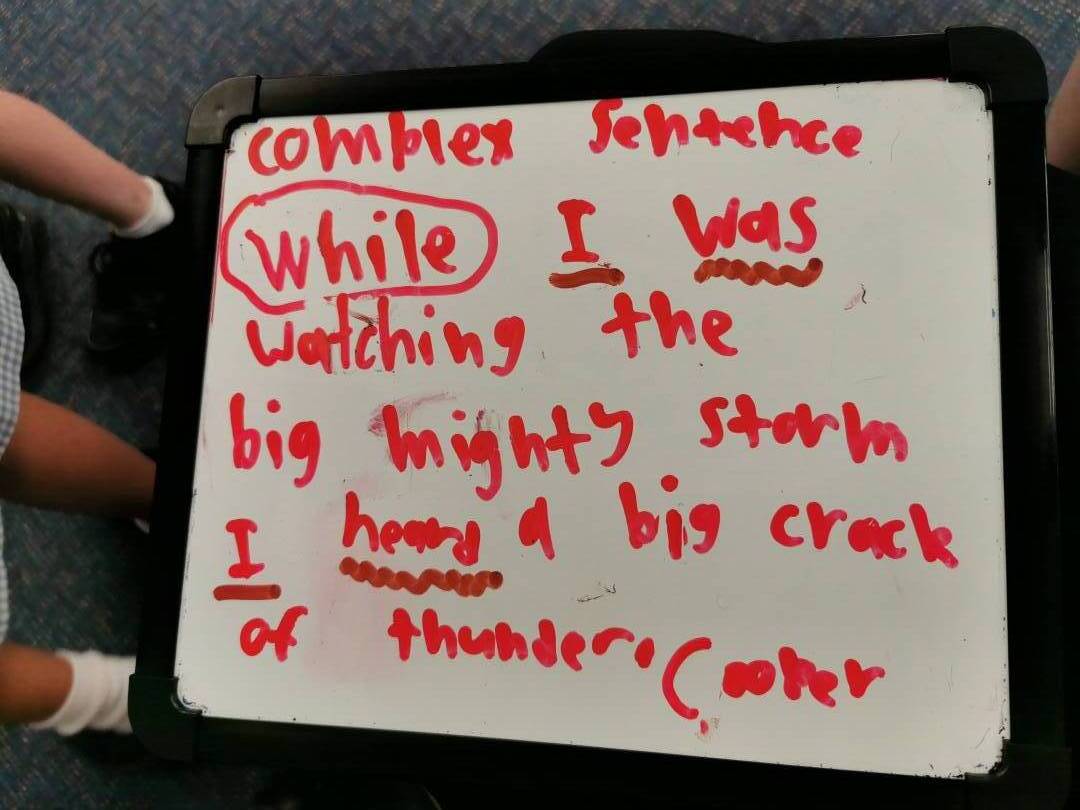 complex sentence
While I was
watching the
big mighty storm
I heard a big crack
of thunder.